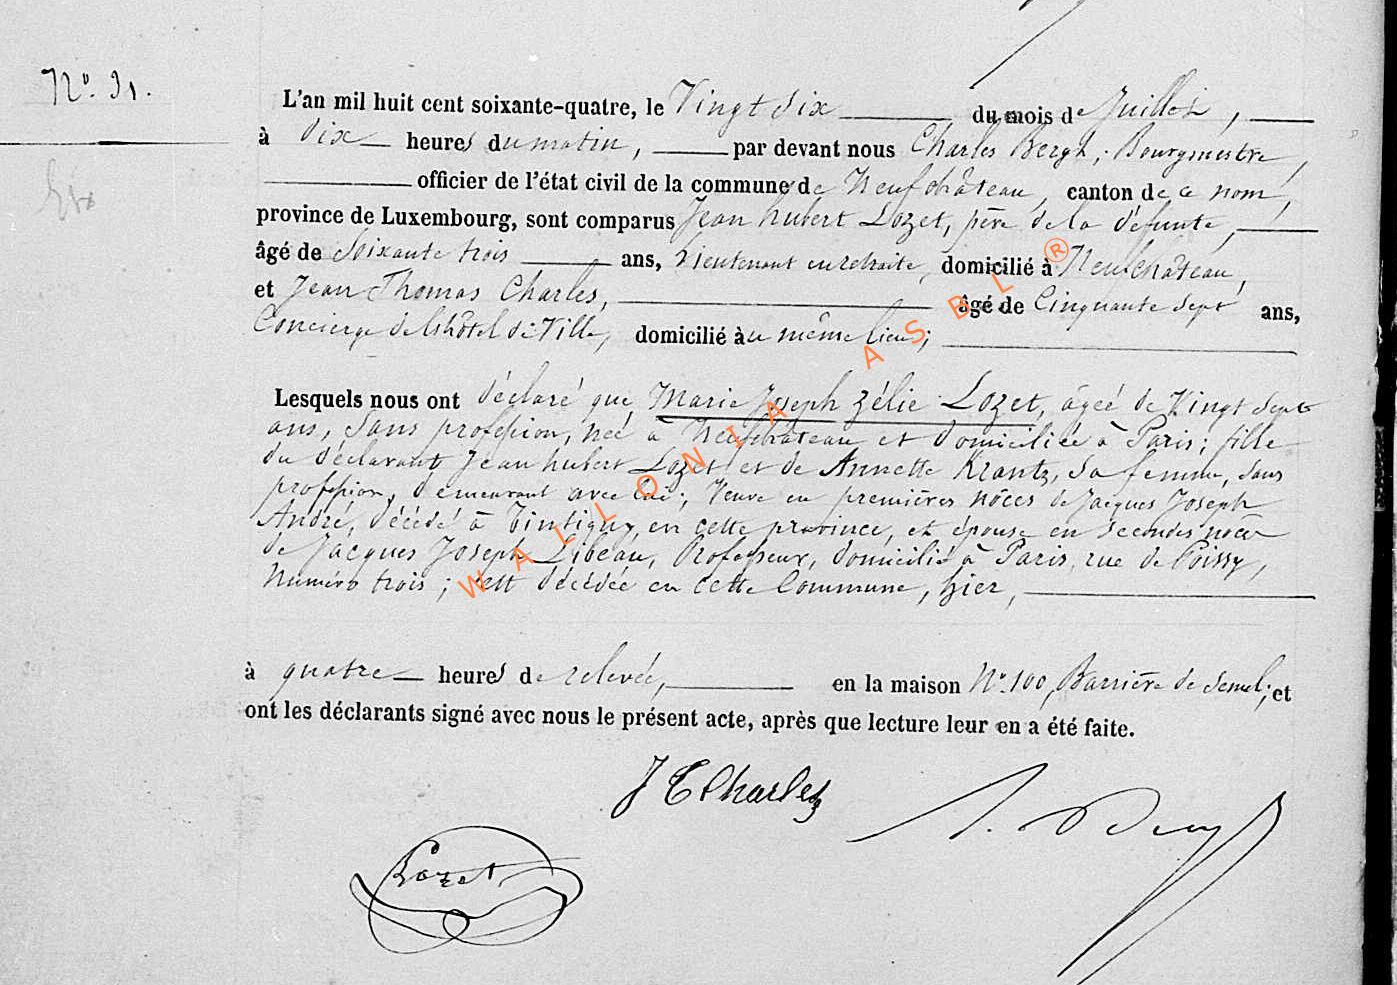 N° 31.
L'an mil huit cent soixante-quatre, le Vingt Six du mois de Juillet,
à dix heures du matin, par devant nous Charles Bergh, Bourgmestre,
officier de l'état civil de la commune de Neufchâteau, canton de ce nom,
province de Luxembourg, sont comparus Jean hubert Lozet, père de la défunte,
âgé de Soixante trois ans, Lieutenant en retraite, domicilié à Neufchâteau,
et Jean Thomas Charles, âgé de Cinquante Sept ans,
Concierge de l'hôtel de Ville, domicilié au même lieu;
Lesquels nous ont déclaré que Marie Joseph Zélie Lozet, âgée de Vingt Sept
ans, Sans profession, née à Neufchâteau et domiciliée à Paris; fille
du déclarant Jean hubert Lozet et de Annette Krantz, sa femme, sans
profession, demeurant avec lui; Veuve en premières nôces de Jacques Joseph
André, décédé à Tintigny en cette province, et épouse en secondes noces
de Jacques Joseph Libeau, Professeur, domicilié à Paris, rue de Poissy,
Numéro trois; est décédée en cette Commune, hier,
à quatre heures de relevée, en la maison N° 100, Barrière de Semel; et
ont les déclarants signé avec nous le présent acte, après que lecture leur en a été faite.
J T Charles
Lozet
WALLONIA ASBL ®